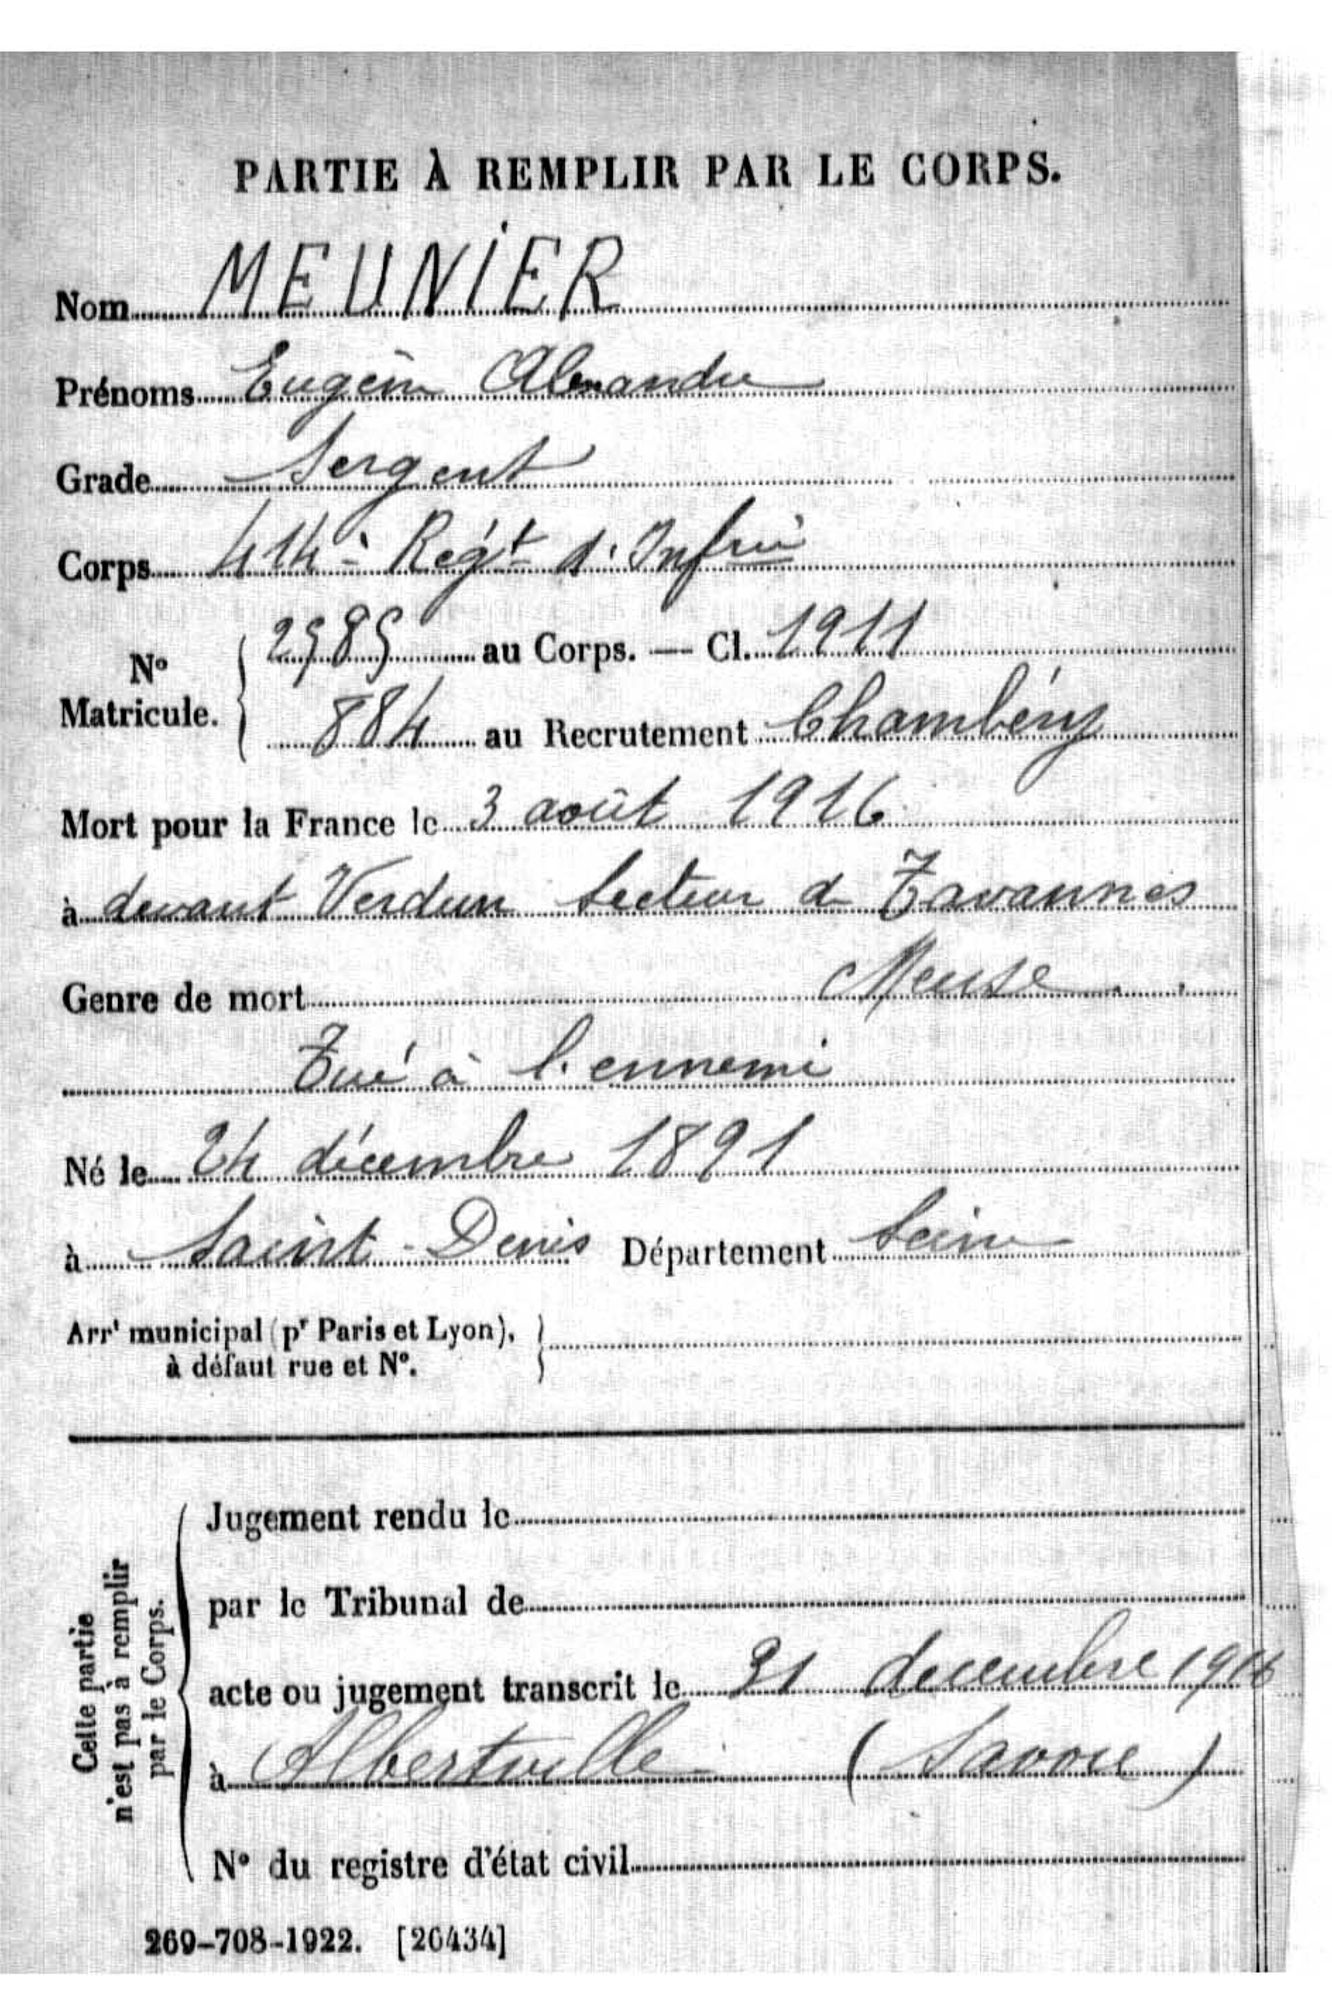 PARTIE À REMPLIR PAR LE CORPS.
Nom MEUNIER
Prénoms Eugène Alexandre
Grade Sergent
Corps 414e Régt d'Infrie
No Matricule. { 2985 au Corps. — Cl. 1911
884 au Recrutement Chambéry
Mort pour la France le 3 août 1916
à devant Verdun Secteur de Tavannes
Genre de mort Meuse
Tué à l'ennemi
Né le 24 décembre 1891
à Saint-Denis Département Seine
Arrt municipal (pr Paris et Lyon), }
à défaut rue et No.
Cette partie
n'est pas à remplir
par le Corps.
Jugement rendu le
par le Tribunal de
acte ou jugement transcrit le 21 decembre 1916
à Albertville (Savoie)
No du registre d'état civil
269-708-1922. [26434]